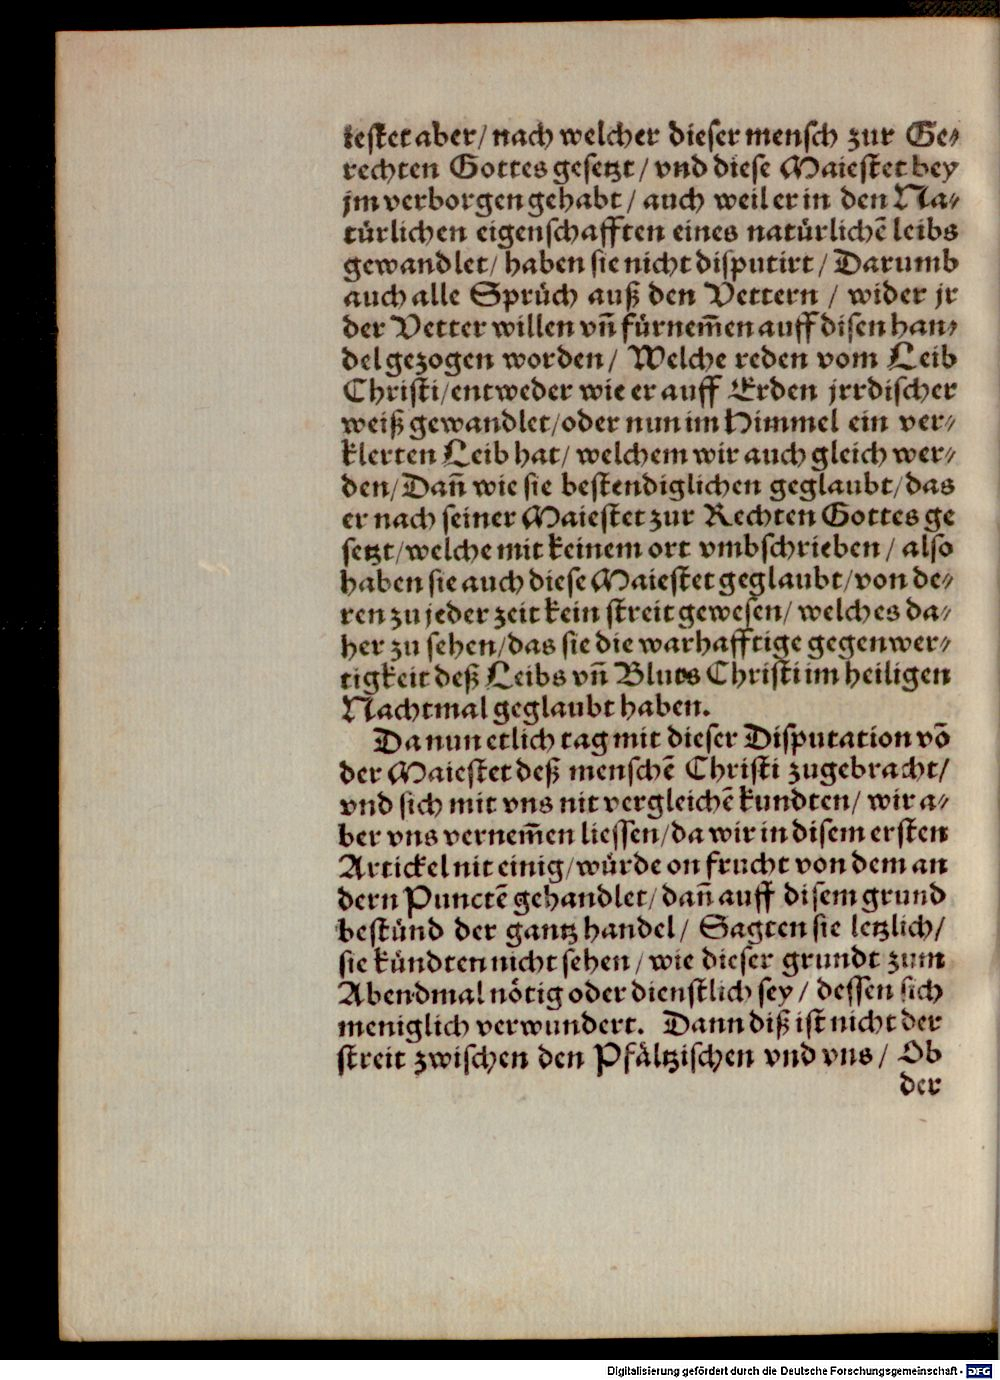 iestet aber/ nach welcher dieser mensch zur Ge⸗
rechten Gottes gesetzt/ vnd diese Maiestet bey
jm verborgen gehabt/ auch weil er in den Na⸗
türlichen eigenschafften eines natürlichẽ leibs
gewandlet/ haben sie nicht disputirt/ Darumb
auch alle Sprüch auß den Vettern / wider jr
der Vetter willen vñ fürnem̃en auff disen han⸗
del gezogen worden/ Welche reden vom Leib
Christi/ entweder wie er auff Erden jrrdischer
weiß gewandlet/ oder nun im Himmel ein ver⸗
klerten Leib hat/ welchem wir auch gleich wer⸗
den/ Dañ wie sie bestendiglichen geglaubt/ das
er nach seiner Maiestet zur Rechten Gottes ge
setzt/ welche mit keinem ort vmbschrieben/ also
haben sie auch diese Maiestet geglaubt/ von de⸗
ren zu jeder zeit kein streit gewesen/ welches da⸗
her zu sehen/ das sie die warhafftige gegenwer⸗
tigkeit deß Leibs vñ Bluts Christi im heiligen
Nachtmal geglaubt haben.
Da nun etlich tag mit dieser Disputation võ
der Maiestet deß menschẽ Christi zugebracht/
vnd sich mit vns nit vergleichẽ kundten/ wir a⸗
ber vns vernem̃en liessen/ da wir in disem ersten
Artickel nit einig/ würde on frucht von dem an
dern Punctẽ gehandlet/ dañ auff disem grund
bestünd der gantz handel/ Sagten sie letzlich/
sie kündten nicht sehen/ wie dieser grundt zum
Abendmal nötig oder dienstlich sey/ dessen sich
meniglich verwundert. Dann diß ist nicht der
streit zwischen den Pfältzischen vnd vns/ Ob
der
Digitalisierung gefördert durch die Deutsche Forschungsgemeinschaft - DFG